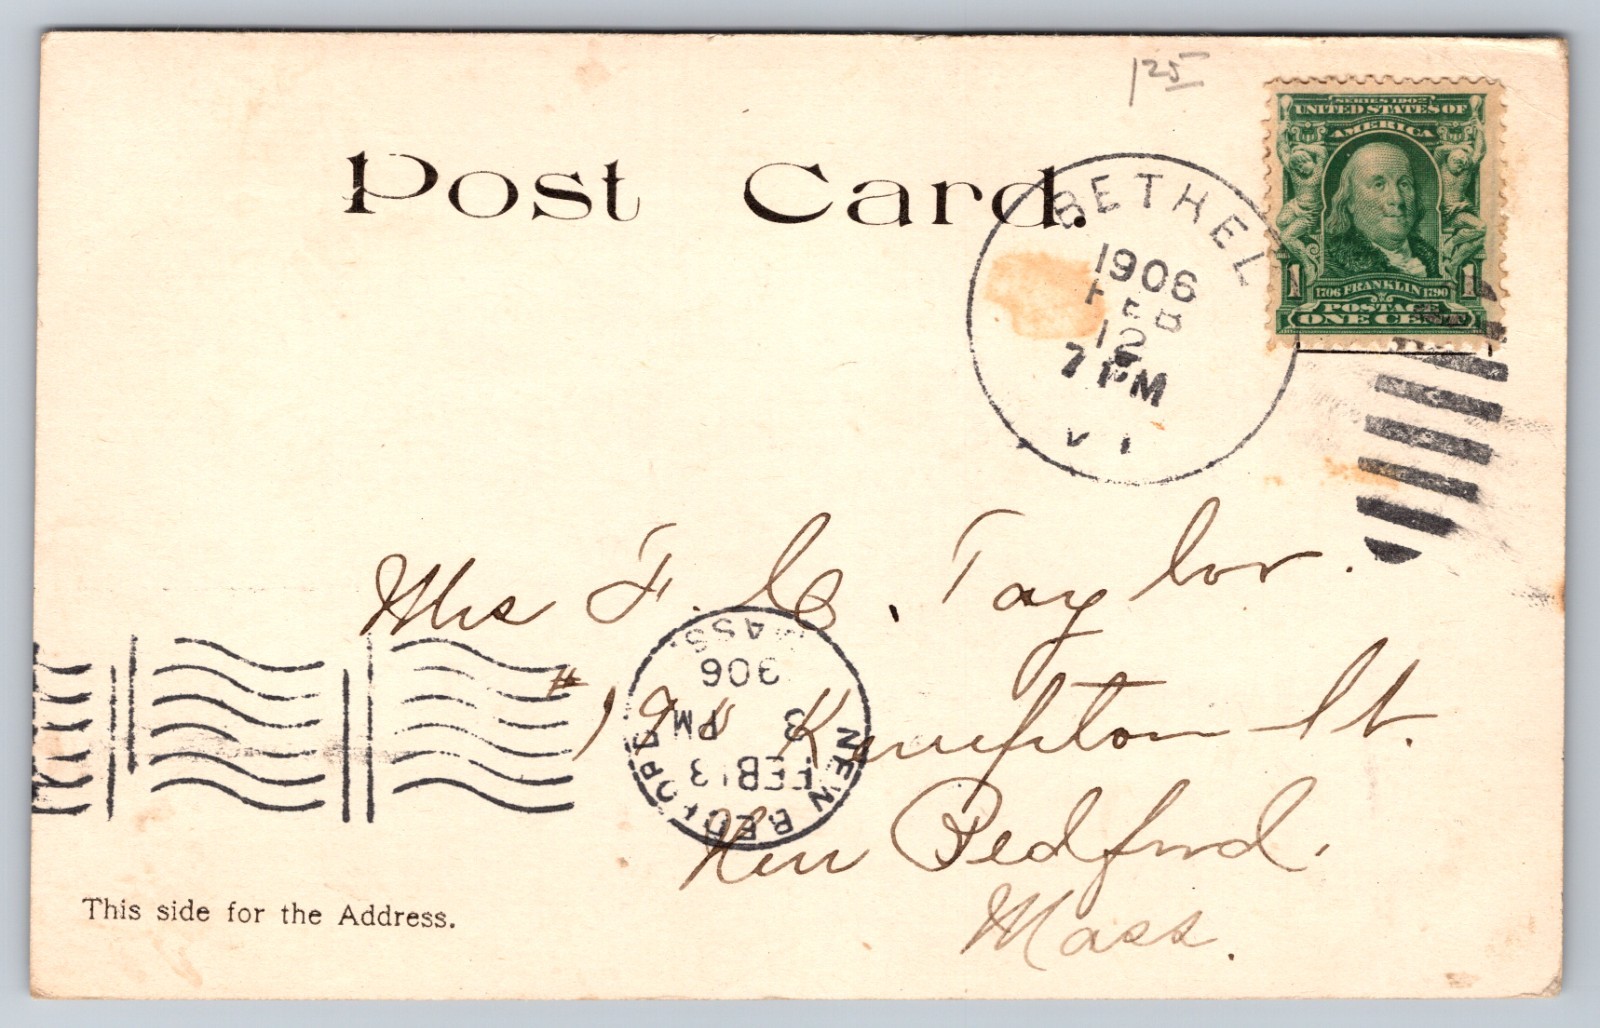 1 25
Post Card.
SERIES 1902
UNITED STATES OF
AMERICA
1 1
1706 FRANKLIN 1790
POSTAGE
ONE CENT
BETHEL
1906
FEB
12
7 PM
VT
Mrs F. C. Taylor.
Kempton St.
New Bedford.
Mass.
NEW BEDFORD
MASS.
FEB 13
3 PM
906
This side for the Address.